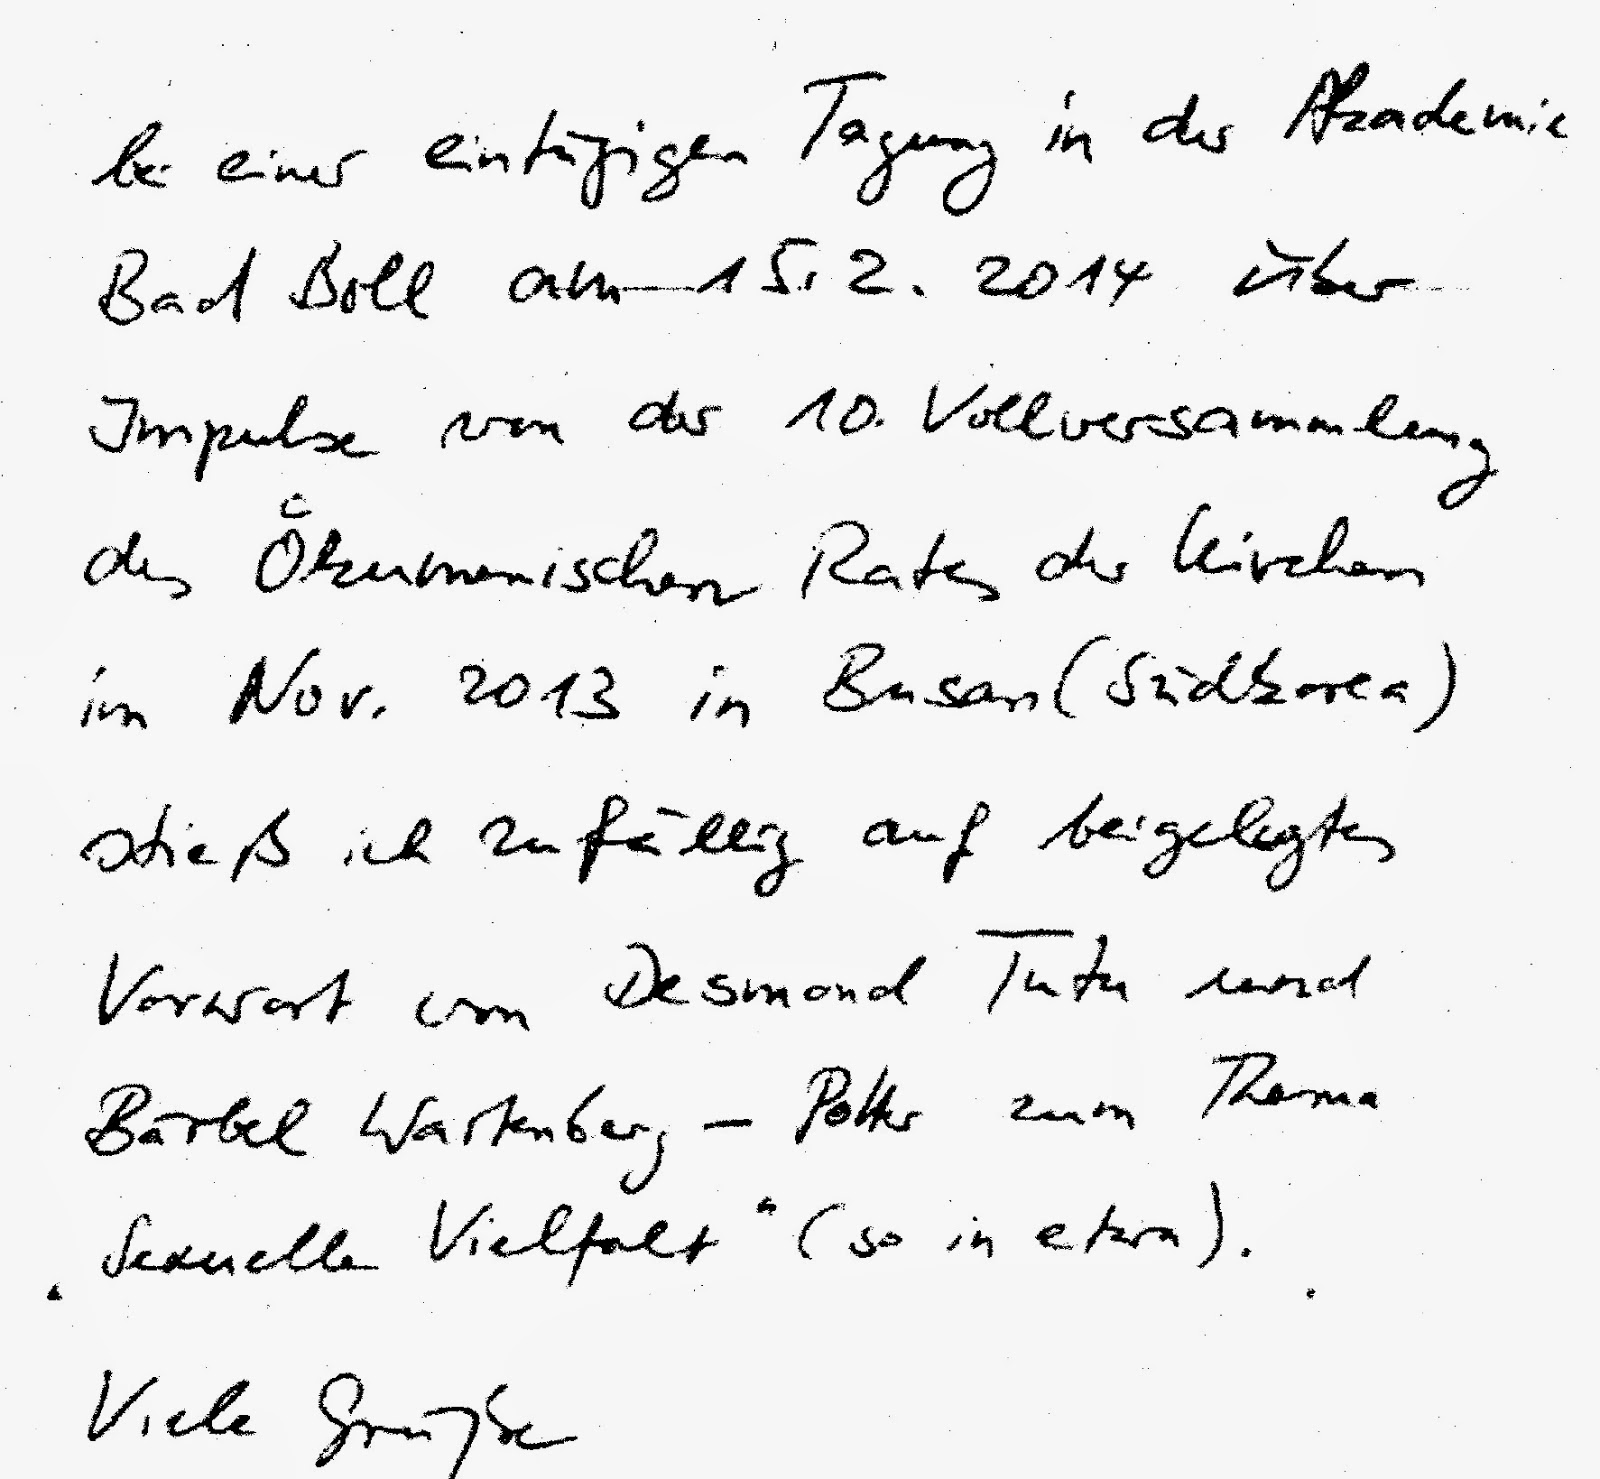 bei einer eintägigen Tagung in der Akademie
Bad Boll am 15.2.2014 über
Impulse von der 10. Vollversammlung
des Ökumenischen Rates der Kirchen
im Nov. 2013 in Busan (Südkorea)
stieß ich zufällig auf beigelegtes
Vorwort von Desmond Tutu und
Bärbel Wartenberg – Potter zum Thema
„Sexuelle Vielfalt“ (so in etwa).
Viele Grüße